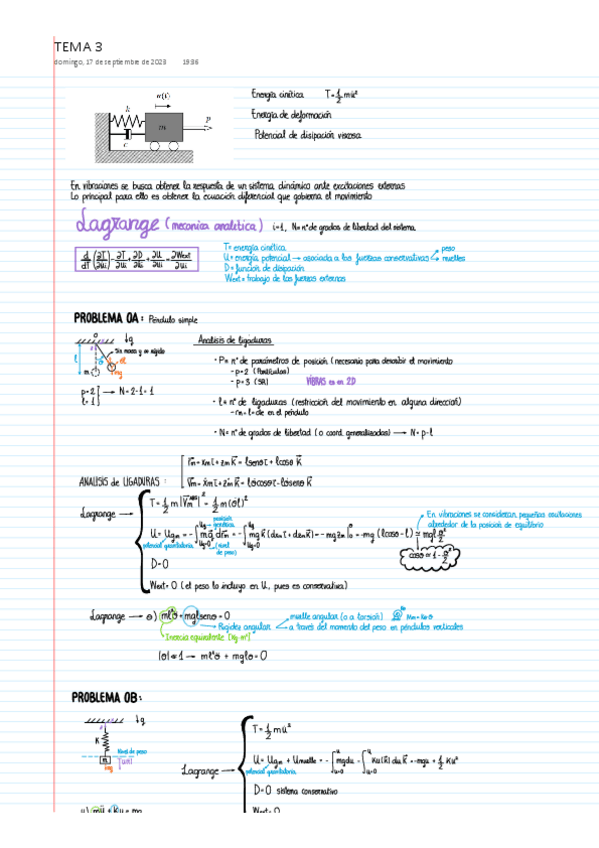 TEMA 3
domingo, 17 de septiembre de 2023 19:36
u(t)
k
m
p
c
Energía cinética T=½mu̇²
Energía de deformación
Potencial de disipación viscosa
En vibraciones se busca obtener la respuesta de un sistema dinámico ante excitaciones externas
Lo principal para ello es obtener la ecuación diferencial que gobierna el movimiento
Lagrange (mecánica analítica) i=1, N= nº de grados de libertad del sistema
d/dT (∂T/∂u̇i) - ∂T/∂ui + ∂D/∂u̇i + ∂U/∂ui = ∂Wext/∂ui
T= energía cinética
U= energía potencial → asociada a las fuerzas conservativas
peso
muelles
D= función de disipación
Wext= trabajo de las fuerzas externas
PROBLEMA 0A: Péndulo simple
g
Sin masa y ∞ rígido
l
m
mg
p=2
l=1
→ N=2-1=1
Análisis de ligaduras
• P= nº de parámetros de posición (necesario para describir el movimiento
- p=2 (Partículas)
- p=3 (SR)
VIBRAS es en 2D
• l= nº de ligaduras (restricción del movimiento en alguna dirección)
• N= nº de grados de libertad (o coord. generalizadas) → N= p-l
ANALISIS de LIGADURAS:
rm = xm i + zm K = lsenθ i + lcosθ K
Vm = ẋm i + żm K = lθ̇cosθ i - lθ̇senθ K
Lagrange →
T= ½ m |Vm|² = ½ m (θ̇l)²
posición genérica
En vibraciones se consideran pequeñas oscilaciones
alrededor de la posición de equilibrio
potencial gravitatoria
cosθ ≈ 1 - θ²/2
D=0
Wext= 0 (el peso lo incluyo en U, pues es conservativa)
Lagrange → θ) ml²θ̈ + mglsenθ = 0
Rigidez angular
muelle angular (o a torsión)
a través del momento del peso en péndulos verticales
Inercia equivalente [Kg·m²]
|θ|≪1 → ml²θ̈ + mglθ = 0
PROBLEMA 0B:
g
K
m
mg
Lagrange →
T= ½ mu̇²
U= Ugm + Umuelle = - ∫ mgdu - ∫ Ku(-K) du K = -mgu + ½ Ku²
potencial gravitatoria
D=0 sistema conservativo
Wext= 0
u) mü + Ku = mg